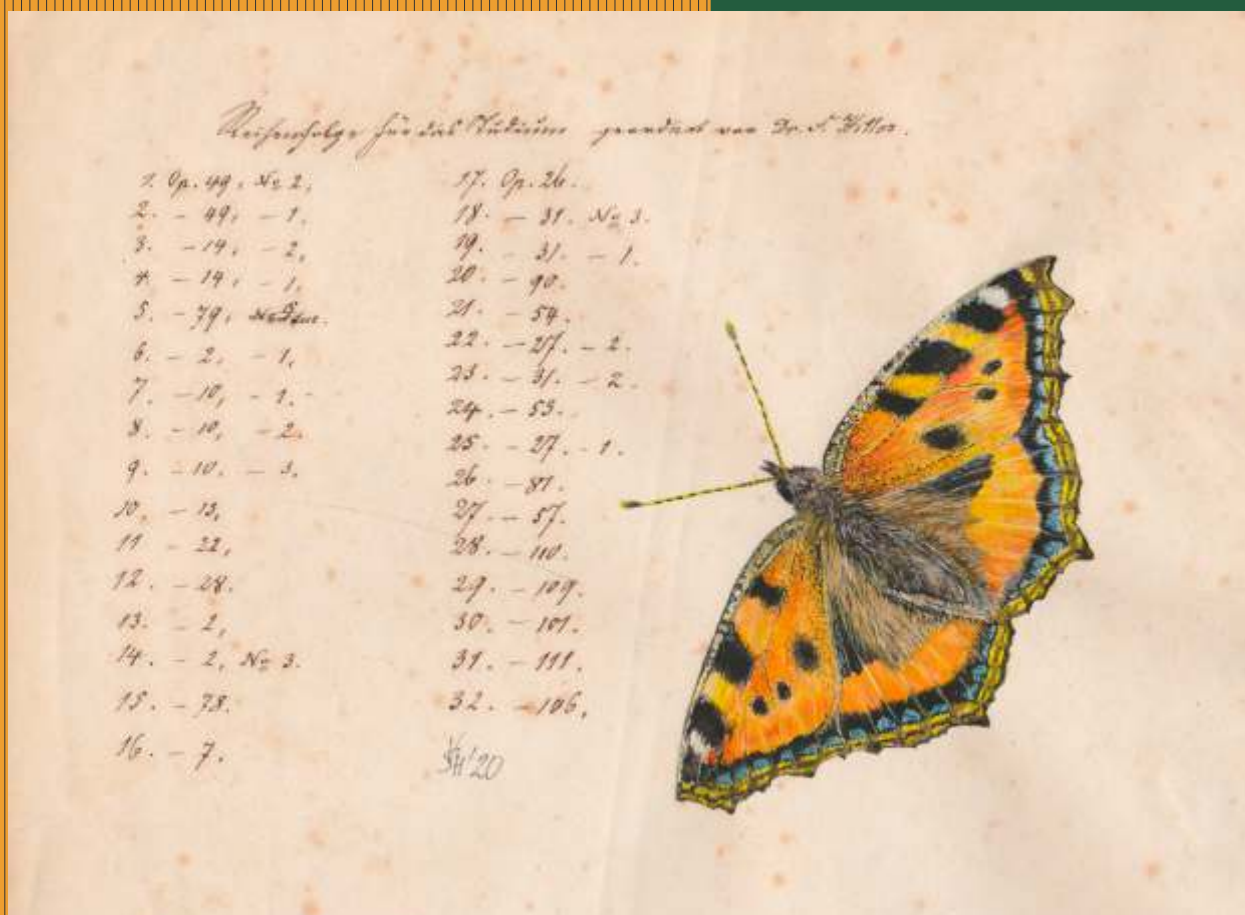 Reihenfolge für das Studium geordnet von Dr. F. Hiller.
1. Op. 49, No 2,
2. - 49, - 1,
3. - 14, - 2,
4. - 14, - 1,
5. - 79,
6. - 2, - 1,
7. - 10, - 1.
8. - 10, - 2.
9. - 10. - 3,
10. - 13,
11 - 22,
12. - 28.
13. - 2,
14. - 2, No 3.
15. - 78.
16. - 7.
17. Op. 26.
18. - 31. No 3.
19. - 31. - 1.
20. - 90.
21. - 54.
22. - 27. - 2.
23. - 31. - 2.
24. - 53.
25. - 27. - 1.
26. - 81.
27. - 57.
28. - 110.
29. - 109.
30. - 101.
31. - 111.
32. - 106,
SH'20